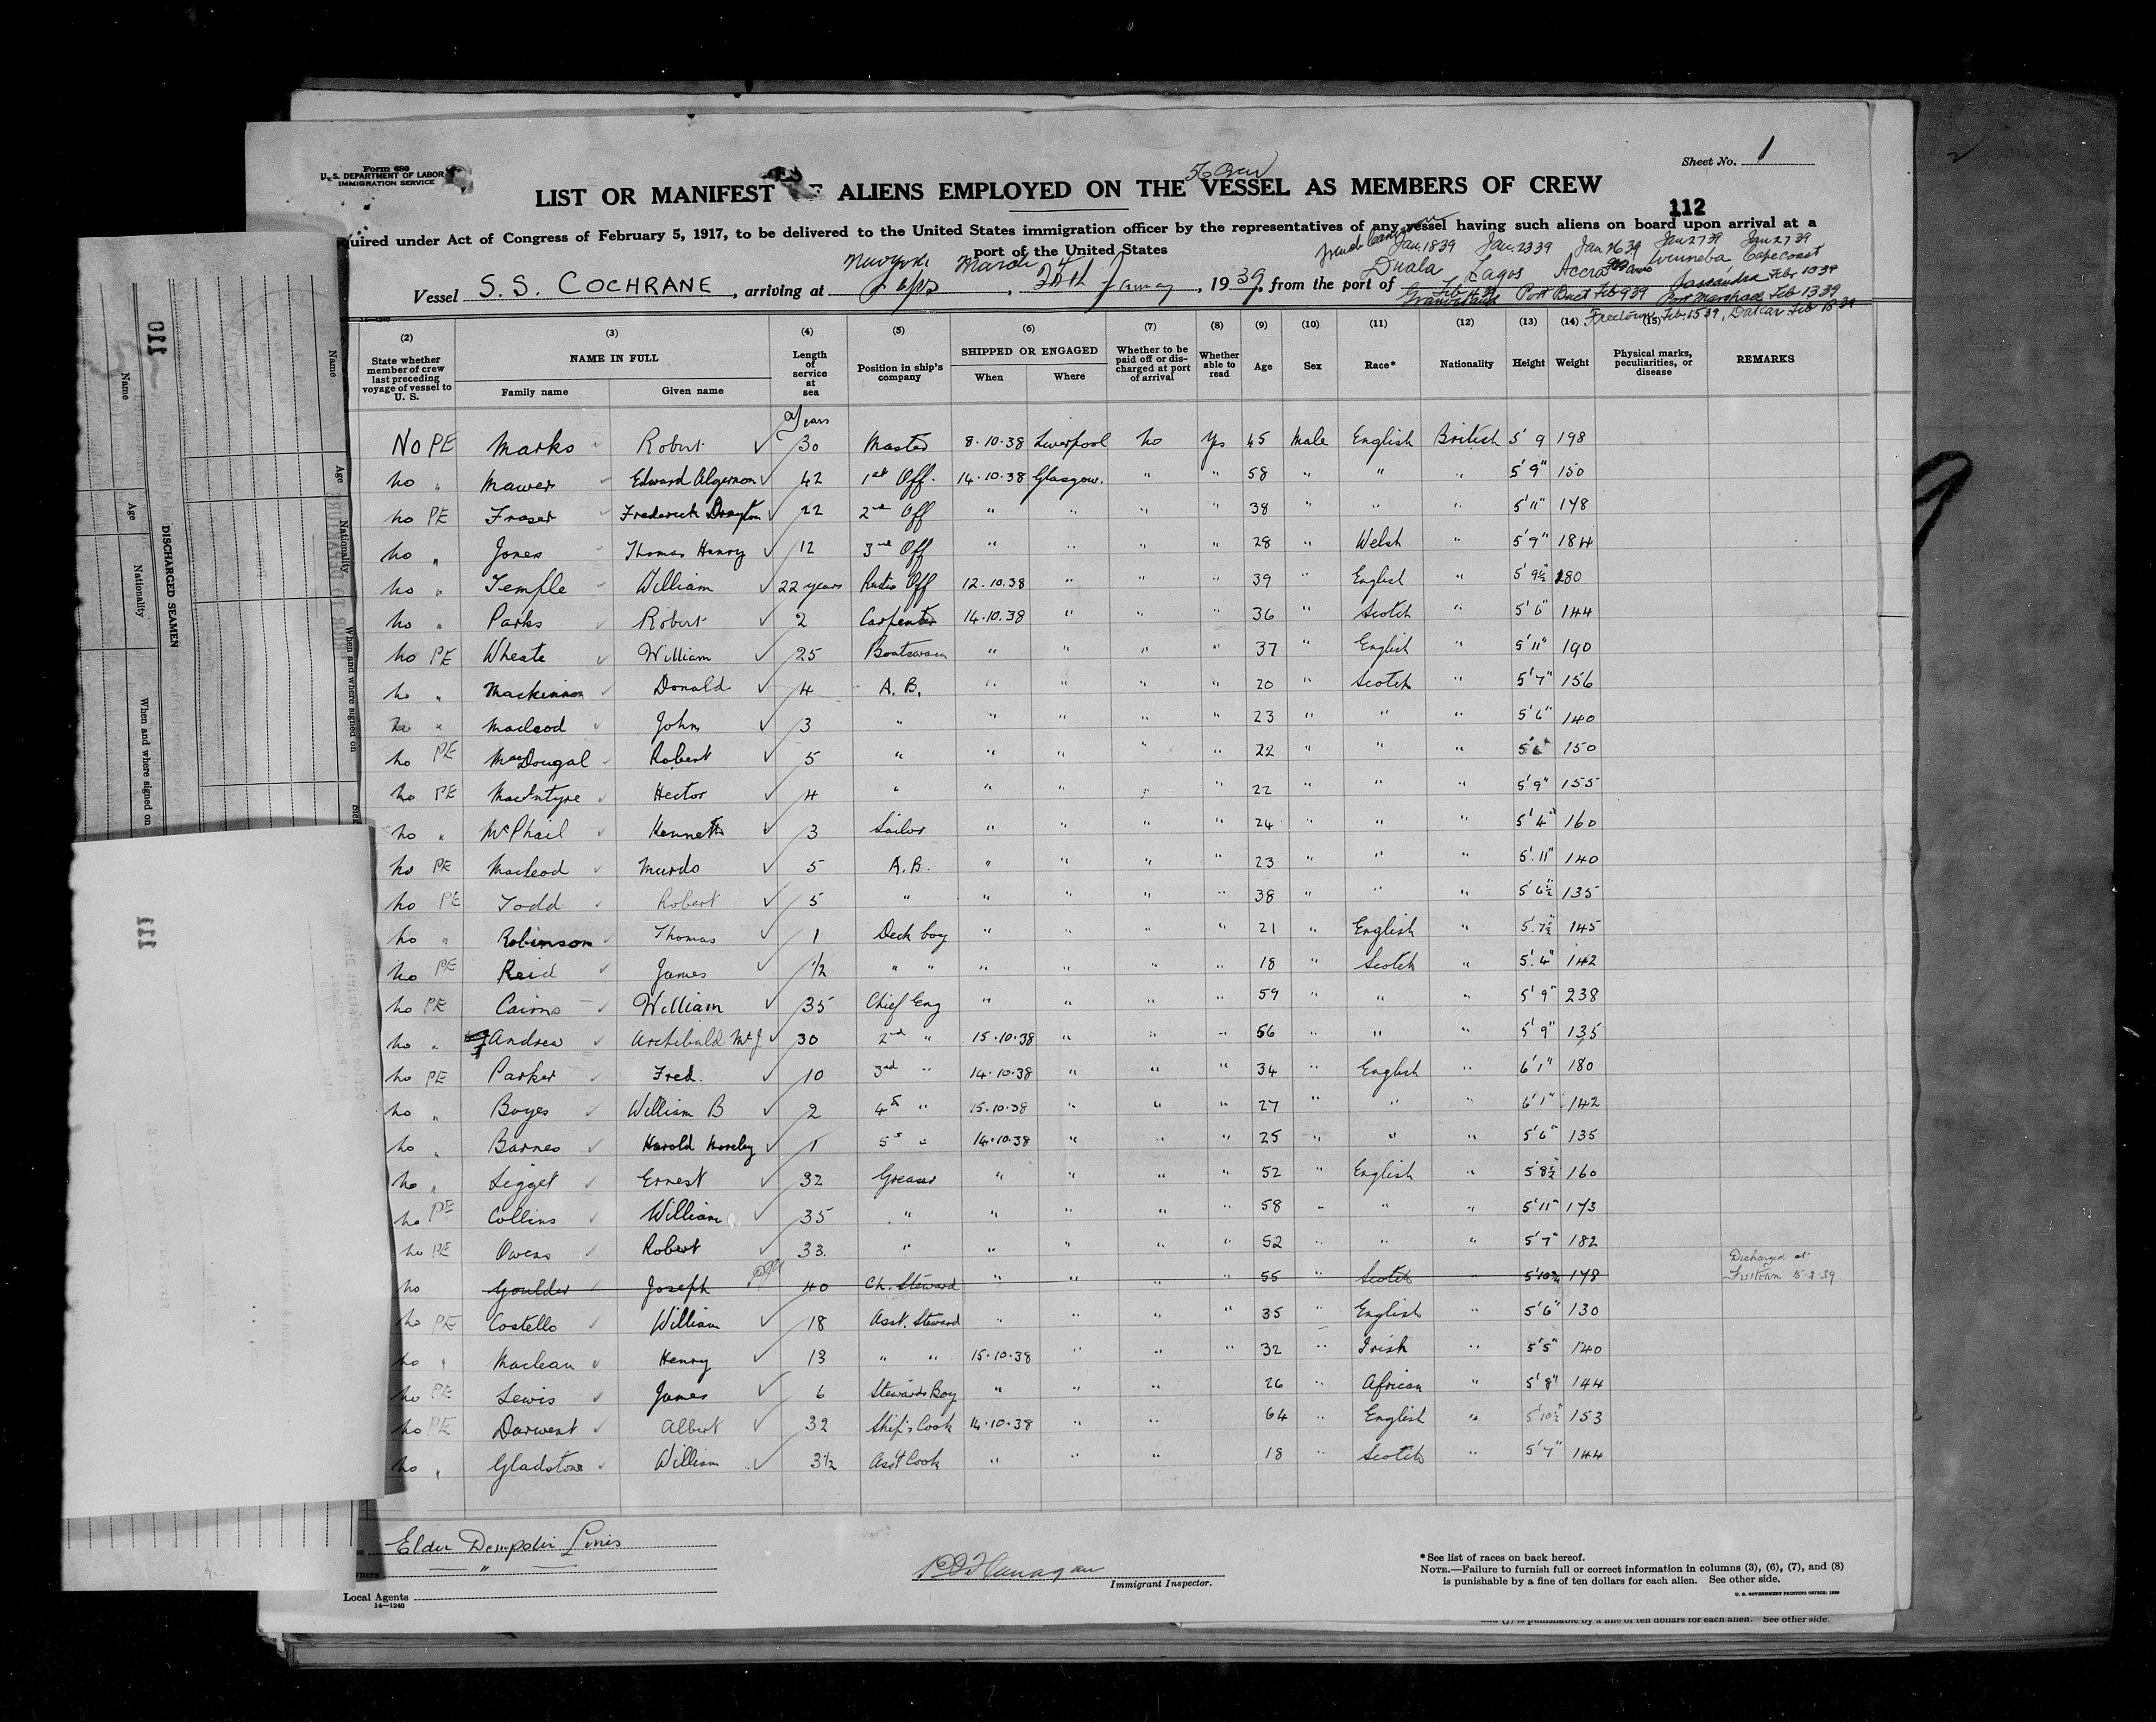 Form 680
U. S. DEPARTMENT OF LABOR
IMMIGRATION SERVICE
Sheet No. 1
56 Crew
LIST OR MANIFEST OF ALIENS EMPLOYED ON THE VESSEL AS MEMBERS OF CREW
112
uired under Act of Congress of February 5, 1917, to be delivered to the United States immigration officer by the representatives of any vessel having such aliens on board upon arrival at a
port of the United States
Jan. 18 39 Jan. 23 39 Jan 26 39 Jan 27 39 Jan 27 39
Duala Lagos Accra Winneba Cape Coast
New York March 4
Vessel S.S. COCHRANE, arriving at , 1939, from the port of
Port Buet Feb 9 39 Sassandra Feb 10 39
Port Marshall Feb 13 39
Freetown Feb. 15 39, Dakar Feb 18 39
(2) (3) (4) (5) (6) (7) (8) (9) (10) (11) (12) (13) (14) (15)
State whether member of crew last preceding voyage of vessel to U. S. NAME IN FULL Family name Given name Length of service at sea Position in ship's company SHIPPED OR ENGAGED When Where Whether to be paid off or discharged at port of arrival Whether able to read Age Sex Race* Nationality Height Weight Physical marks, peculiarities, or disease REMARKS
Years
NO PE Marks Robert 30 Master 8.10.38 Liverpool No Yes 45 Male English British 5' 9 198
No " Mawer Edward Algernon 42 1st Off. 14.10.38 Glasgow. " " 58 " " " 5'9" 150
No PE Fraser Frederick Drayton 22 2nd Off " " " " 38 " " " 5'11" 178
No " Jones Thomas Henry 12 3rd Off " " " " 28 " Welsh " 5'9" 184
No " Temple William 22 years Radio Off 12.10.38 " " " 39 " English " 5'9½" 180
No " Parks Robert 2 Carpenter 14.10.38 " " " 36 " Scotch " 5'6" 144
No PE Wheate William 25 Boatswain " " " " 37 " English " 5'11" 190
No " Mackinnon Donald 4 A.B. " " " " 20 " Scotch " 5'7" 156
No " Macleod John 3 " " " " " 23 " " " 5'6" 140
No PE MacDougal Robert 5 " " " " " 22 " " " 5'6" 150
No PE MacIntyre Hector 4 " " " " " 22 " " " 5'9" 155
No " McPhail Kenneth 3 Sailor " " " " 24 " " " 5'4" 160
No PE Macleod Murdo 5 A.B. " " " " 23 " " " 5'.11" 140
No PE Todd Robert 5 " " " " " 38 " " " 5'6½" 135
No " Robinson Thomas 1 Deck boy " " " " 21 " English " 5'.7½" 145
No PE Reid James 1/2 " " " " " " 18 " Scotch " 5'.4" 142
No PE Cairns William 35 Chief Eng " " " " 59 " " " 5'9" 238
No " Andrew Archibald McJ 30 2nd " 15.10.38 " " " 56 " " " 5'9" 135
No PE Parker Fred. 10 3rd " 14.10.38 " " " 34 " English " 6'1" 180
No " Boyes William B 2 4th " 15.10.38 " " " 27 " " " 6'1" 142
No " Barnes Harold 1 5th " 14.10.38 " " " 25 " " " 5'6" 135
No " Ligget Ernest 32 Greaser " " " " 52 " English " 5'8½" 160
No PE Collins William 35 " " " " " 58 " " " 5'11" 173
No PE Owens Robert 33. " " " " " 52 " " " 5'7" 182
No Goulder Joseph 40 Ch. Steward " " " " 55 " Scotch " 5'10¾ 178 Discharged at Freetown 15.2.39
No PE Costello William 18 Asst. Steward " " " " 35 " English " 5'6" 130
No " Maclean Henry 13 " " 15.10.38 " " " 32 " Irish " 5'5" 140
No PE Lewis James 6 Stewards Boy " " " 26 " African " 5'8" 144
No PE Darwent Albert 32 Ship's Cook 14.10.38 " " 64 " English " 5'10½" 153
No " Gladstone William 3½ Ass't Cook " " " 18 " Scotch " 5'7" 144
Elder Dempster Lines
"
Local Agents
14—1240
Flanagan
Immigrant Inspector.
*See list of races on back hereof.
NOTE.—Failure to furnish full or correct information in columns (3), (6), (7), and (8)
is punishable by a fine of ten dollars for each alien. See other side.
U. S. GOVERNMENT PRINTING OFFICE: 1939
is punishable by a fine of ten dollars for each alien. See other side.
110
111
Name
Age
Nationality
When and where signed on
DISCHARGED SEAMEN
Name
Age
Nationality
When and where signed on